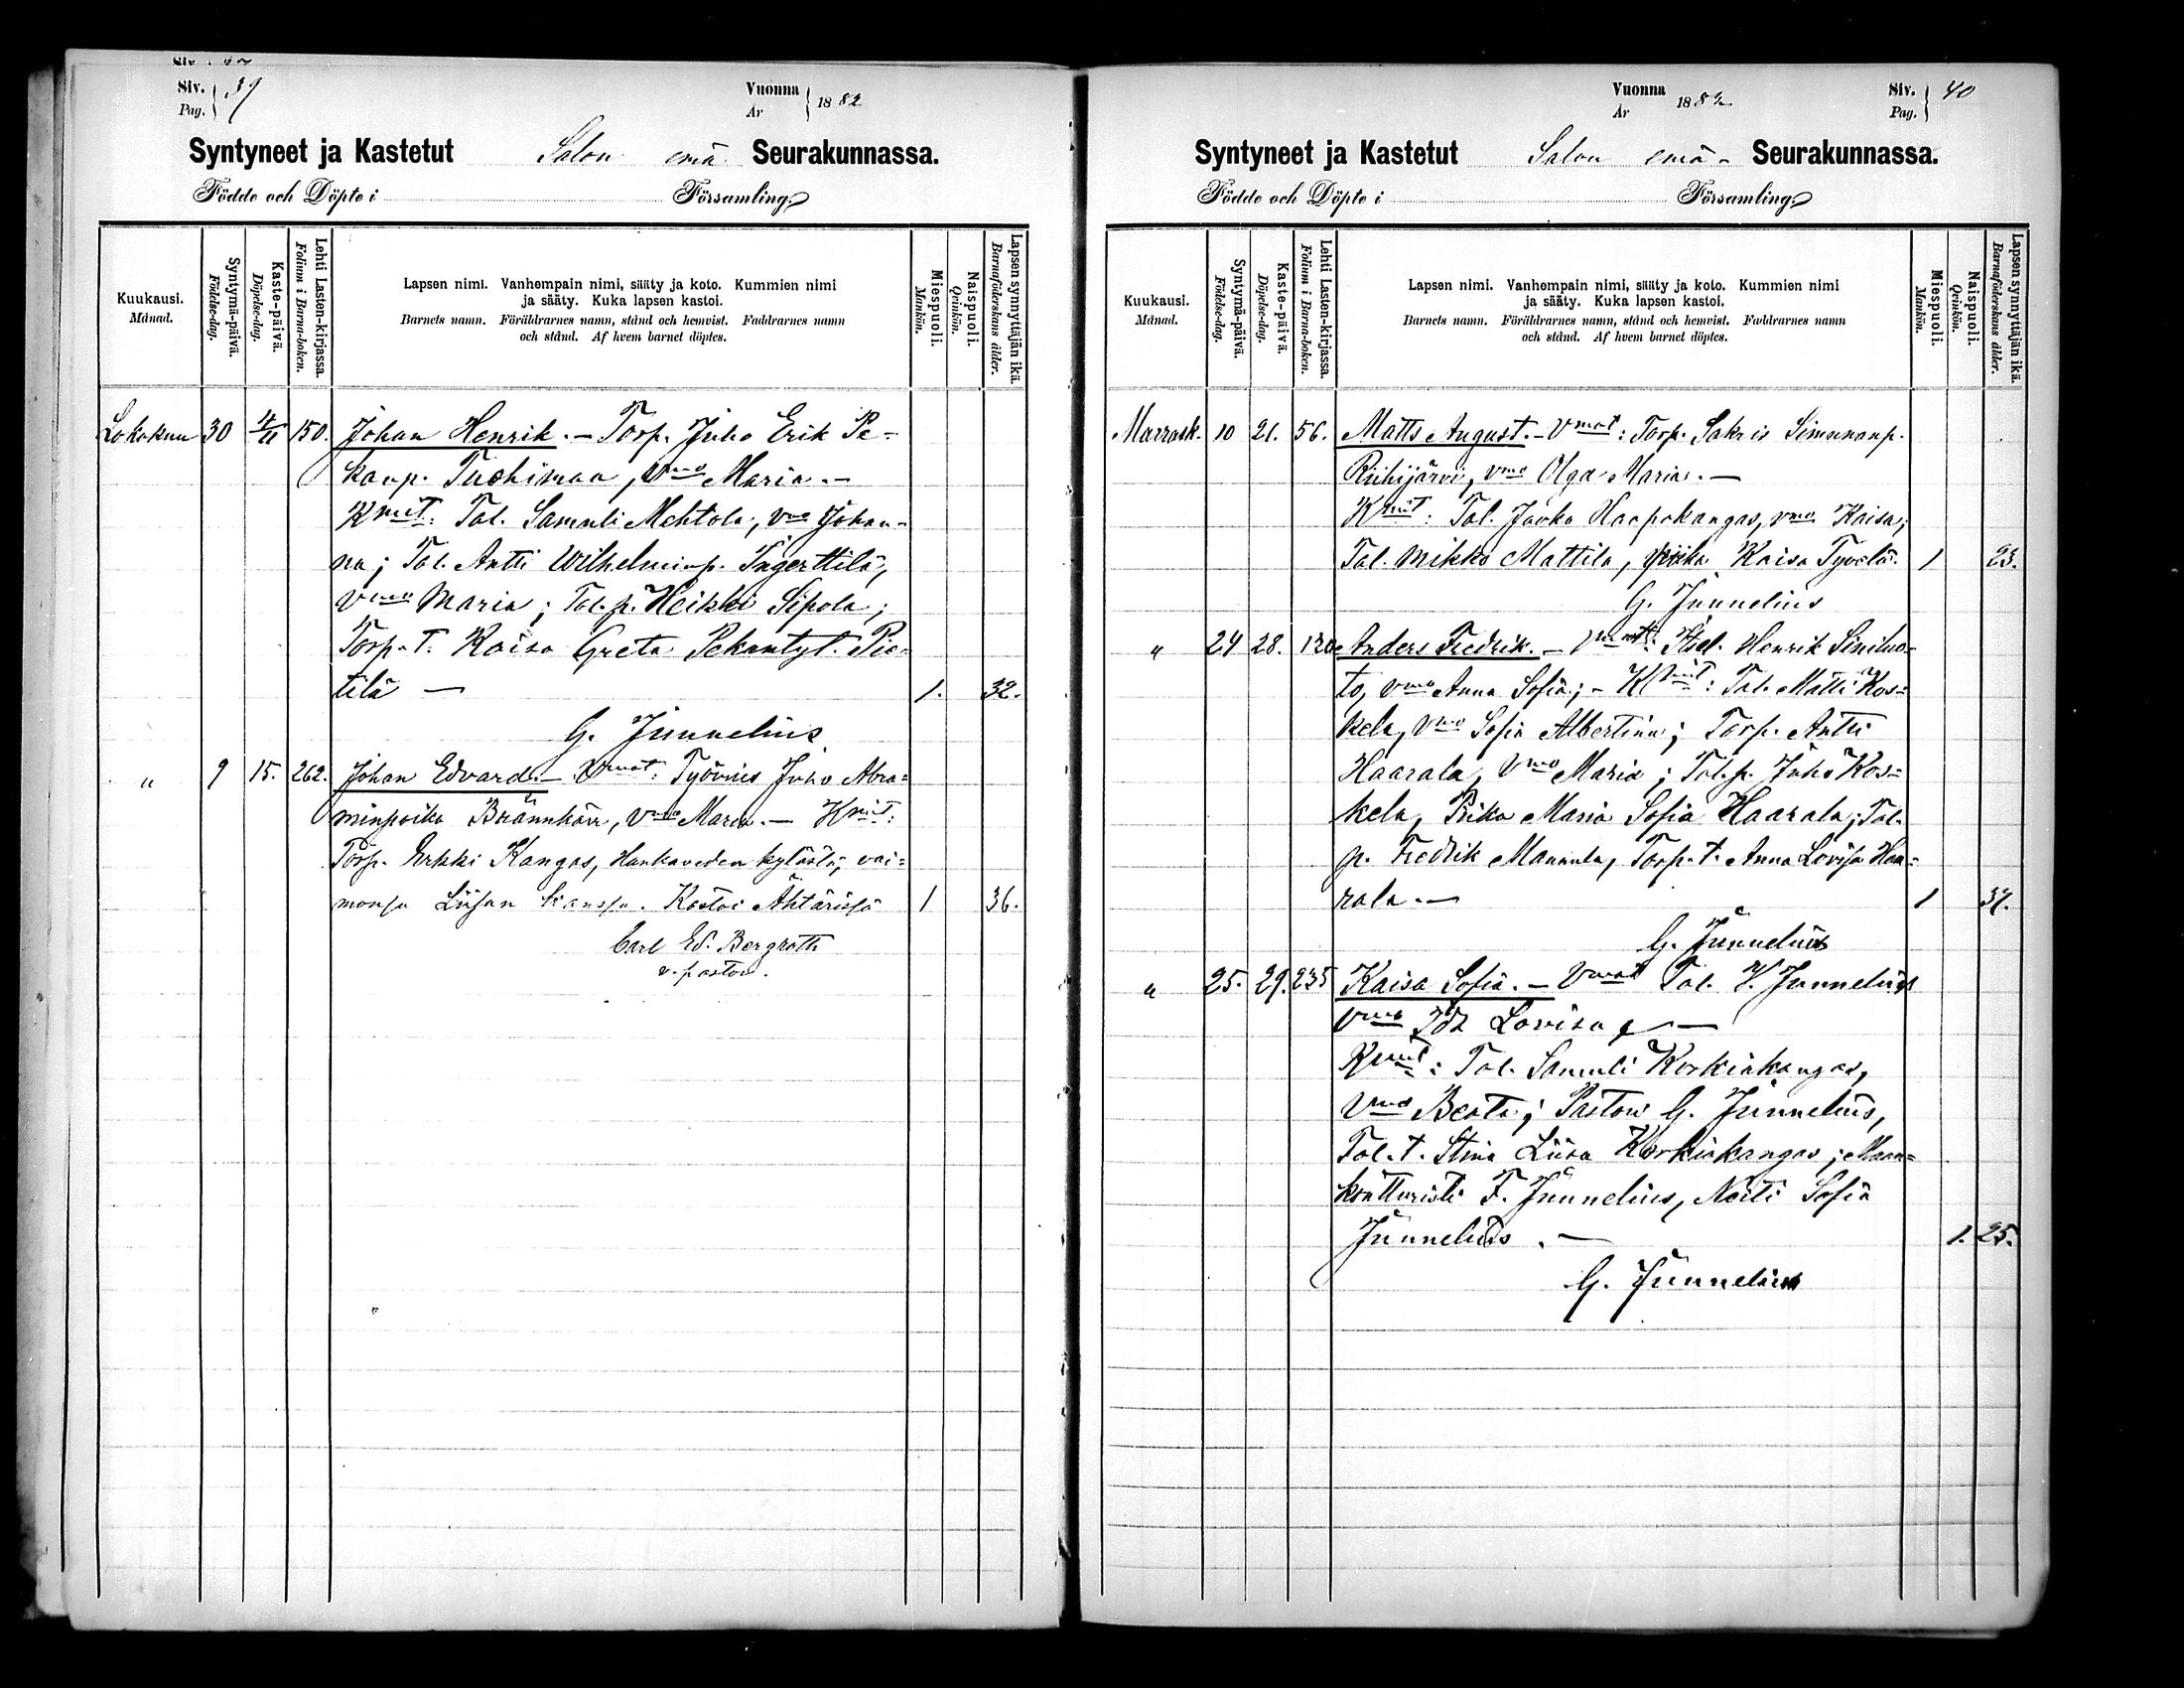 Siv. 39
Pag.
Vuonna 1882
År
Syntyneet ja Kastetut Salon emä Seurakunnassa.
Födde och Döpte i Församling.
Kuukausi.
Månad.
Syntymä-päivä.
Födelse-dag.
Kaste-päivä.
Döpelse-dag.
Lehti Lasten-kirjassa.
Folium i Barna-boken.
Lapsen nimi. Vanhempain nimi, sääty ja koto. Kummien nimi
ja sääty. Kuka lapsen kastoi.
Barnets namn. Föräldrarnes namn, stånd och hemvist. Faddrarnes namn
och stånd. Af hvem barnet döptes.
Miespuoli.
Mankön.
Naispuoli.
Qvinkön.
Lapsen synnyttäjän ikä.
Barnaföderskans ålder.
Lokakuu 30 4/11 150. Johan Henrik. — Torp. Juho Erik Pe=
kanp. Tuohimaa, Vmo Maria. —
Kmit: Tal. Samuli Mehtola, vmo Johan=
na; Tal. Antti Wilhelminp. Ingerttilä,
Vmo Maria; Tal.p. Heikki Sipola;
Torp.t. Kaisa Greta Pekantyt. Pie=
tilä — 1. 32.
G. Junnelius
" 9 15. 262. Johan Edvard. — Vmat: Työmies Juho Abra=
minpoika Brännkärr, Vmo Maria. — Kmit:
Torp. Erkki Kangas, Hankaveden kylästä, vai=
monsa Liisan kanssa. Kastoi Ähtärissä 1 36.
Carl Ed. Bergroth
v. pastori.
Vuonna 1882
År
Siv. 40
Pag.
Syntyneet ja Kastetut Salon emä- Seurakunnassa.
Födde och Döpte i Församling.
Kuukausi.
Månad.
Syntymä-päivä.
Födelse-dag.
Kaste-päivä.
Döpelse-dag.
Lehti Lasten-kirjassa.
Folium i Barna-boken.
Lapsen nimi. Vanhempain nimi, sääty ja koto. Kummien nimi
ja sääty. Kuka lapsen kastoi.
Barnets namn. Föräldrarnes namn, stånd och hemvist. Faddrarnes namn
och stånd. Af hvem barnet döptes.
Miespuoli.
Mankön.
Naispuoli.
Qvinkön.
Lapsen synnyttäjän ikä.
Barnaföderskans ålder.
Marrask. 10 21. 56. Matts August. — Vmat: Torp. Sakris Simunanp.
Riihijärvi, vmo Olga Maria. —
Kmit: Tal. Jaako Haapokangas, vmo Kaisa;
Tal. Mikko Mattila, piika Kaisa Tyvelä. 1 23.
G. Junnelius
" 24 28. 120 Anders Fredrik. — Vmat: Itsel. Henrik Siniluo=
to, vmo Anna Sofia; — Kmit: Tal. Matti Kos=
kela, Vmo Sofia Albertina; Torp. Antti
Haarala, Vmo Maria; Tal.p. Juho Kos=
kela, Piika Maria Sofia Haarala; Tal.
p. Fredrik Mannula, Torp.t. Anna Lovisa Haa=
rala. — 1 37.
G. Junnelius
" 25. 29. 235 Kaisa Sofia. — Vmat Tal. V. Junnelius
vmo Ida Lovisa —
Kmit: Tal. Samuli Korkiakangas,
Vmo Beata; Pastori G. Junnelius,
Tal.t. Stina Liisa Korkiakangas; Maan=
kontturisti F. Junnelius, Neiti Sofia
Junnelius. — 1. 25.
G. Junnelius